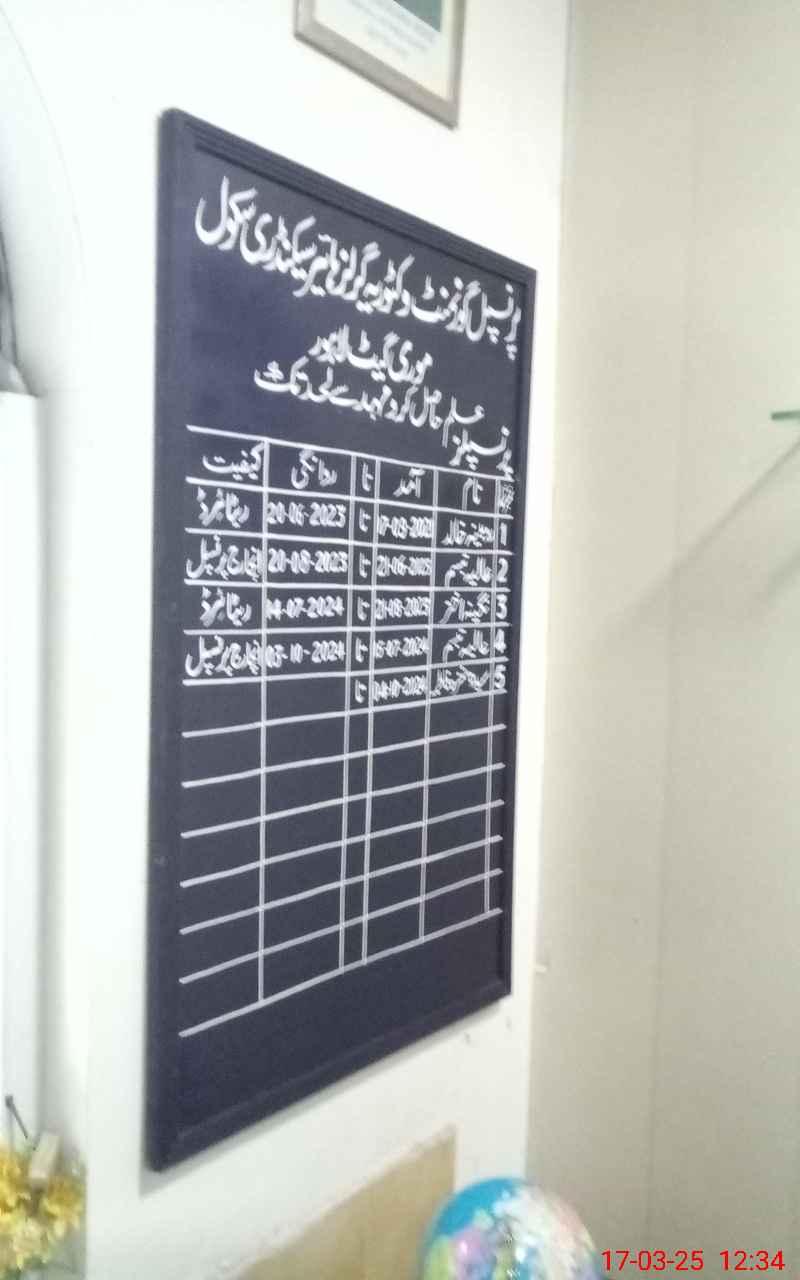 پرنسپل گورنمنٹ وکٹوریہ گرلز ہائیر سیکنڈری سکول
موری گیٹ لاہور
علم حاصل کرو مہد سے لحد تک
پرنسپلز
نام آمد تا روانگی کیفیت
1 روبینہ خالد 17-03-2021 تا 20-06-2023 ریٹائرڈ
2 عالیہ تبسم 21-06-2023 تا 20-08-2023 انچارج پرنسپل
3 نگینہ اختر 21-08-2023 تا 14-07-2024 ریٹائرڈ
4 عالیہ تبسم 15-07-2024 تا 03-10-2024 انچارج پرنسپل
5 04-10-2024 تا
17-03-25 12:34